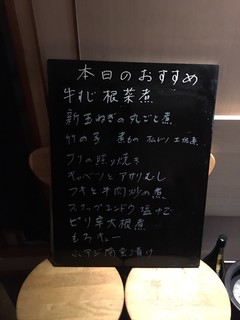 本日のおすすめ
牛すじ根菜煮
新玉ねぎの丸ごと煮
竹の子 煮もの
ブリの照り焼き
キャベツとアサリむし
フキと牛肉炒め煮
スナップエンドウ塩ゆで
ピリ辛大根煮
もろキュー